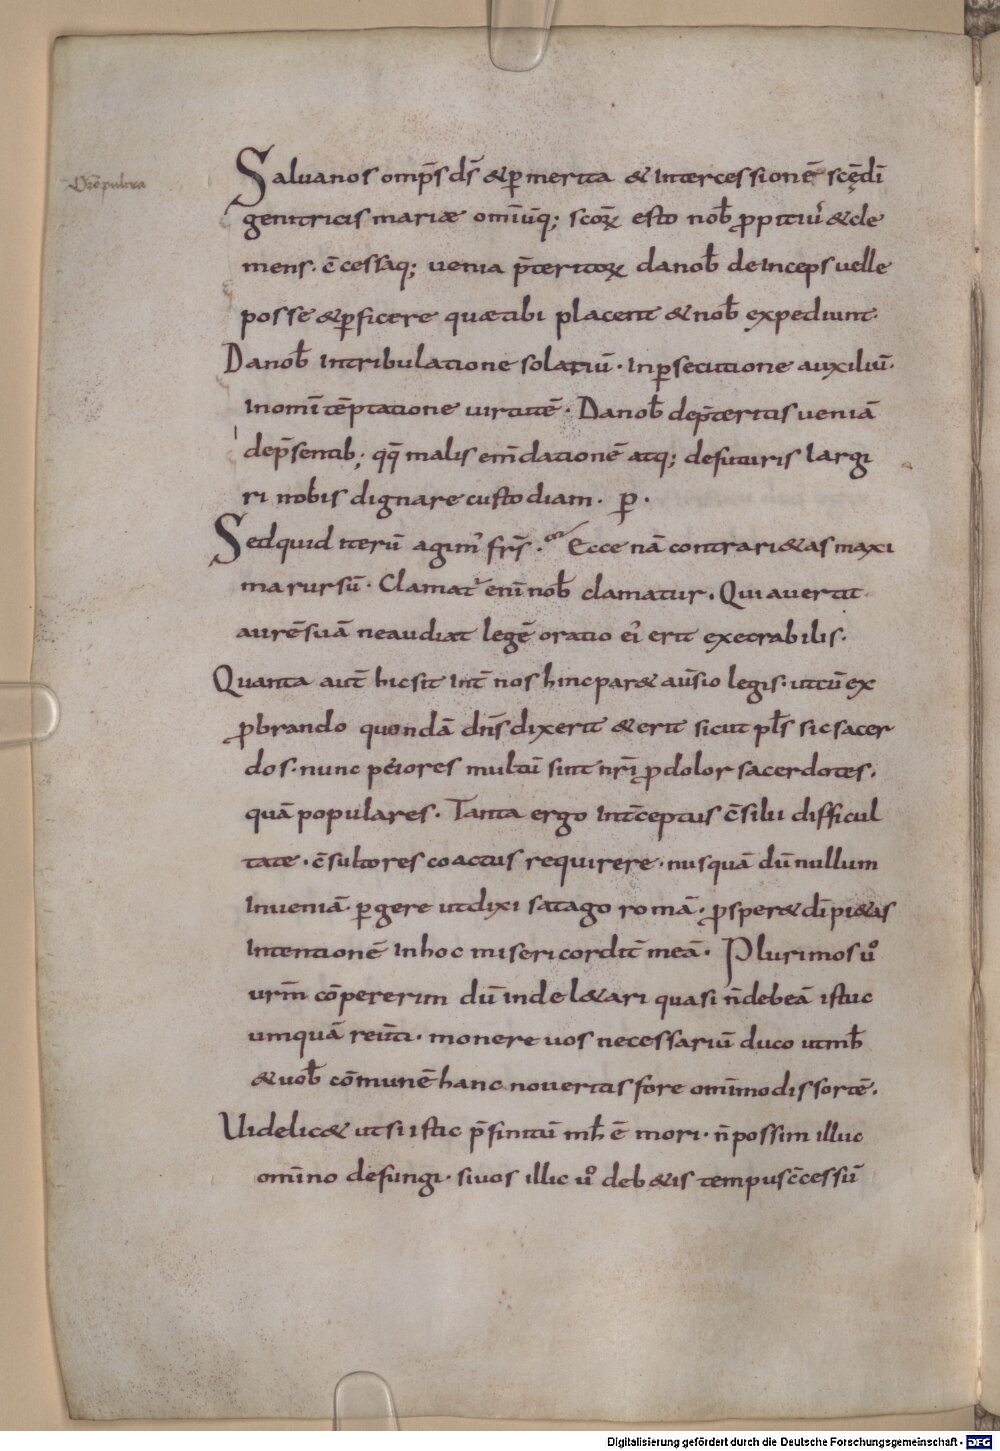 Orõ pulcra
Salua nos omp̄s ds̄ & ꝑ merita & intercessionē scę̄ dī
genitricis mariæ omiūq; scoꝝ esto nob̄ ꝓpitiꝰ & cle
mens· c̄cessaq; uenia p̄teritoꝝ da nob̄ deinceps uelle
posse & ꝑficere quæ tibi placent & nob̄ expediunt·
Da nob̄ in tribulatione solatiū· in ꝑsecutione auxiliū·
in omī tēptatione uirtutē· Da nob̄ de p̄teritis ueniā
de p̄sentib; qq̄ malis em̄dationē atq; de futuris largi
ri nobis dignare custodiam· ꝑ·
Sed quid iterū agimꝰ frs̄· Ecce nā contrari&as maxi
ma rursū· Clamat᷑ enī nob̄ clamatur· Qui auertit
aurē suā ne audiat legē oratio eiꝰ erit execrabilis·
Quanta aut̄ hic sit int̄ nos hinc par& aūsio legis· ut cū ex
ꝓbrando quondā dn̄s dixerit & erit sicut pl̄s sic sacer
dos· nunc peiores multū sint nr̄i ꝓdolor sacerdotes·
quā populares· Tanta ergo int̄ceptus c̄silii difficul
tate· c̄sultores coactus requirere· nusquā dū nullum
inueniā· ꝑgere ut dixi satago romā· ꝓsper& dī pi&as
intentionē in hoc misericordit̄ meā· Plurimos uº
urm̄ cōpererim dū inde l&ari quasi n̄ debeā istuc
umquā reūti· monere uos necessariū duco ut mb̄
& uob̄ cōmunē hanc noueritis fore omīmodis sortē·
Uidelic& ut si istic p̄finitū mh̄ ē mori· n̄ possim illuc
omīno defungi· si uos illic uº deb&is tempus c̄cessū
Digitalisierung gefördert durch die Deutsche Forschungsgemeinschaft - DFG